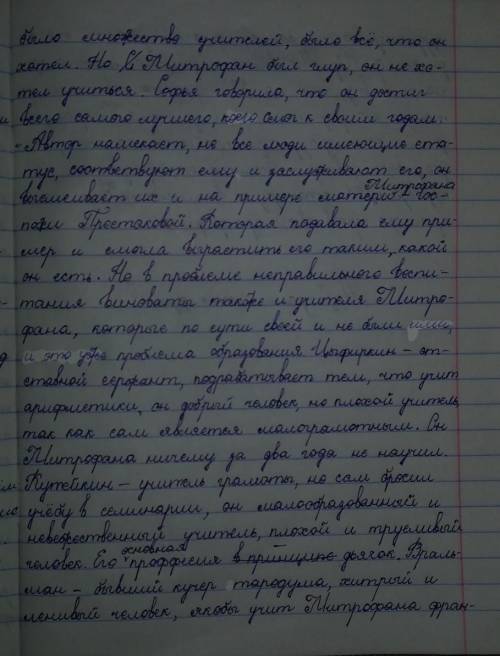 было множество учителей, было всё, что он
хотел. Но Митрофан был глуп, он не хо-
тел учиться. Софья говорила, что он достиг
всего самого лучшего, кого смог к своим годам.
Автор намекает, не все люди имеющие ста-
тус, соответствуют ему и заслуживают его, он
высмеивает их и на примере матери Митрофана - гос-
пожи Простаковой. Которая подавала ему при-
мер и смогла вырастить его таким, какой
он есть. Но в проблеме неправильного воспи-
тания виноваты также и учителя Митро-
фана, которые по сути своей и не были ими,
и это уже проблема образования. Цыфиркин - от-
ставной сержант, подрабатывает тем, что учит
арифметики, он добрый человек, но плохой учитель,
так как сам является малограмотным. Он
Митрофана ничему за два года не научил.
Кутейкин - учитель грамоты, но сам бросил
учёбу в семинарии, он малообразованный и
невежественный учитель, плохой и трусливый
человек. Его основная проффесия в принципе дьячок. Враль-
ман - бывший кучер тародума, хитрый и
ленивый человек, якобы учит Митрофана фран-